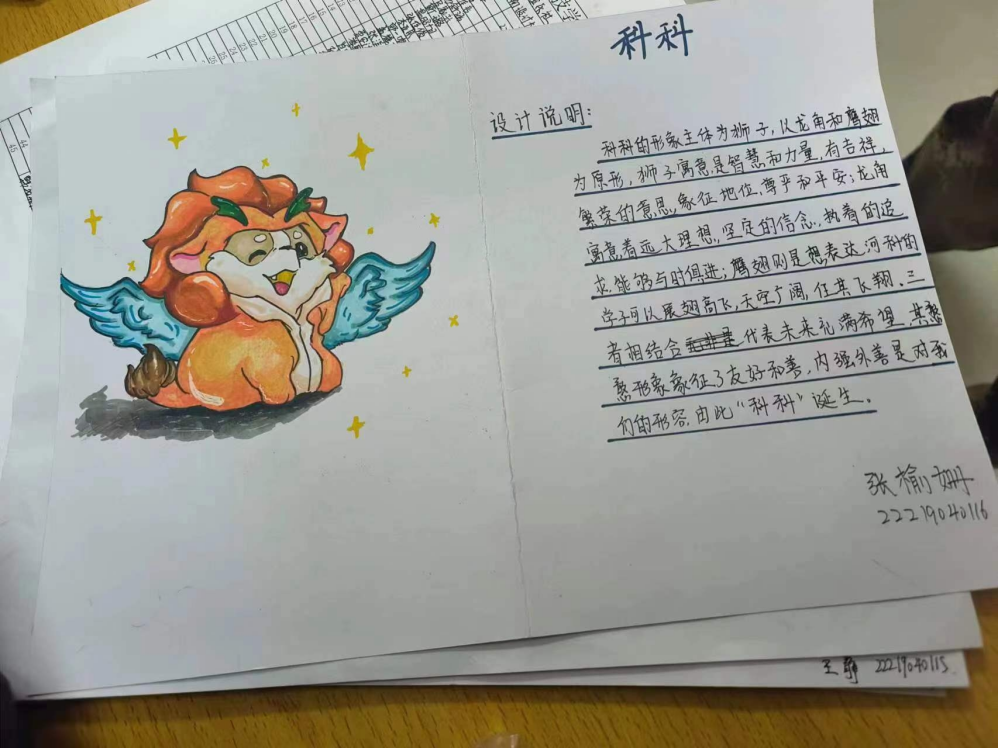 科科
设计说明:
科科的形象主体为狮子,以龙角和鹰翅
为原形,狮子寓意是智慧和力量,有吉祥,
繁荣的意思,象征地位,尊乎和平安;龙角
寓意着远大理想,坚定的信念,执着的追
求能够与时俱进;鹰翅则是想表达河科的
学子可以展翅高飞,天空广阔,任其飞翔、三
者相结合代表未来充满希望、其憨
憨形象象征了友好和善,内强外善是对我
们的形容,由此“科科”诞生。
张榆姗
22219040116
王静 22219040115